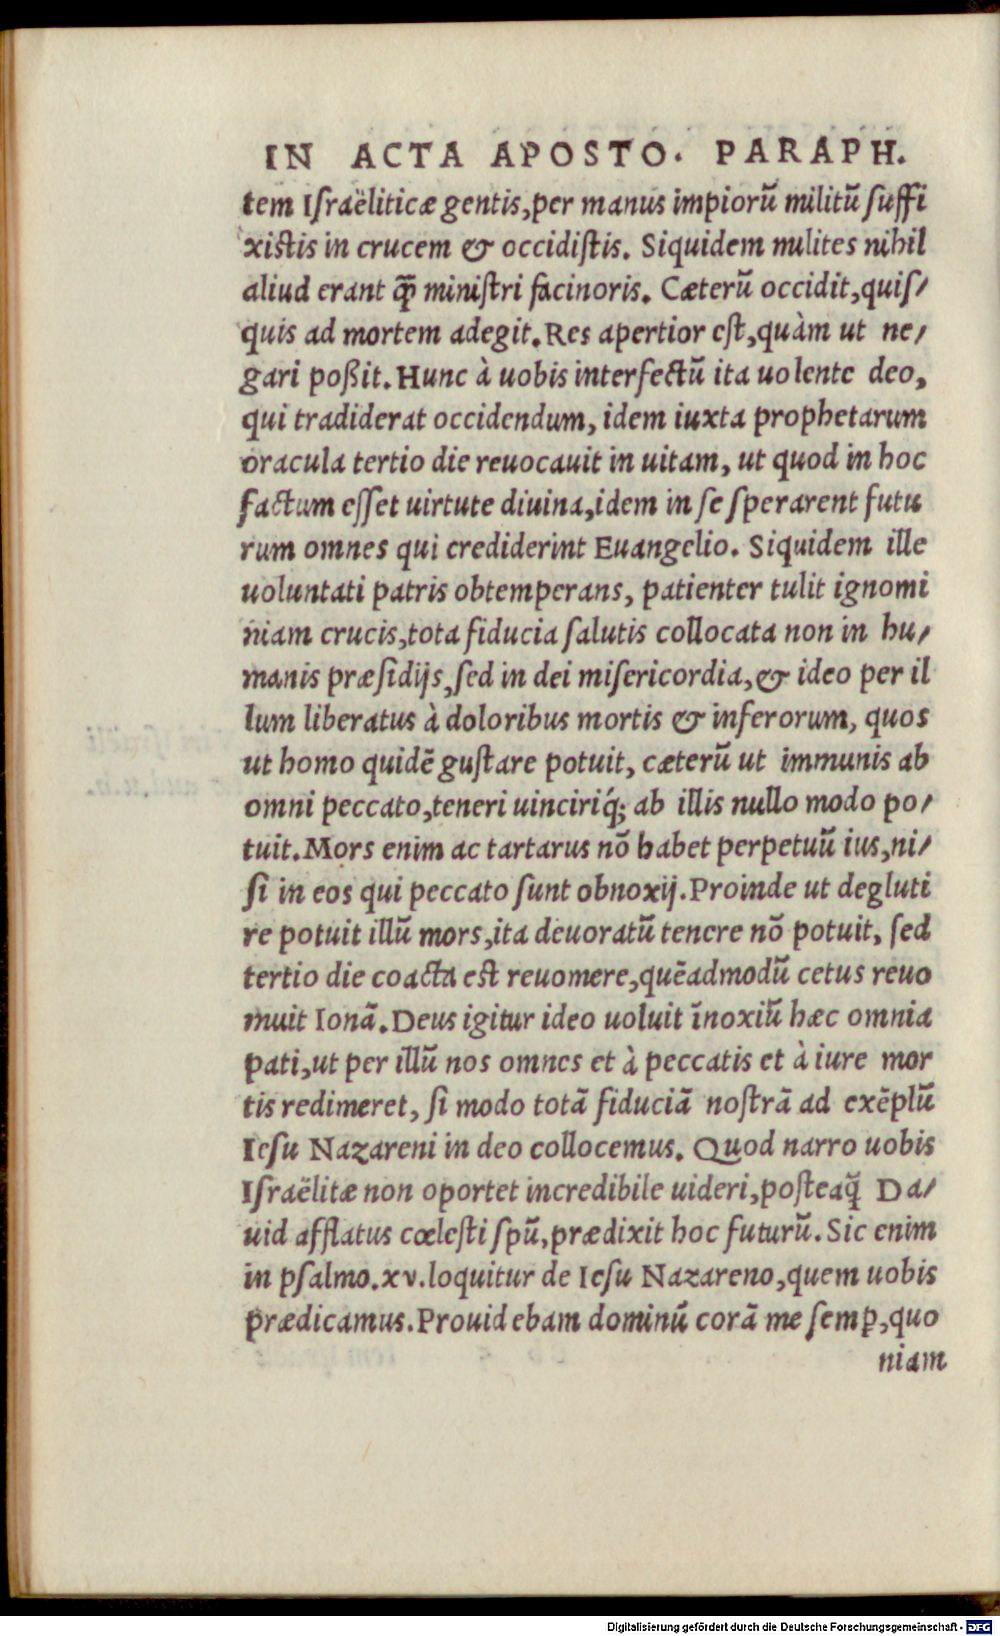 IN ACTA APOSTO. PARAPH.
tem Iſraëliticæ gentis, per manus impiorū militū ſuffi
xiſtis in crucem & occidiſtis. Siquidem milites nihil
aliud erant q̄ꝫ miniſtri facinoris. Cæterū occidit, quiſ/
quis ad mortem adegit. Res apertior eſt, quàm ut ne/
gari poßit. Hunc à uobis interfectū ita uolente deo,
qui tradiderat occidendum, idem iuxta prophetarum
oracula tertio die reuocauit in uitam, ut quod in hoc
factum eſſet uirtute diuina, idem in ſe ſperarent futu
rum omnes qui crediderint Euangelio. Siquidem ille
uoluntati patris obtemperans, patienter tulit ignomi
niam crucis, tota fiducia ſalutis collocata non in hu/
manis præſidijs, ſed in dei miſericordia, & ideo per il
lum liberatus à doloribus mortis & inferorum, quos
ut homo quidē guſtare potuit, cæterū ut immunis ab
omni peccato, teneri uinciriq́; ab illis nullo modo po/
tuit. Mors enim ac tartarus nō habet perpetuū ius, ni/
ſi in eos qui peccato ſunt obnoxij. Proinde ut degluti
re potuit illū mors, ita deuoratū tenere nō potuit, ſed
tertio die coacta eſt reuomere, quēadmodū cetus reuo
muit Ionā. Deus igitur ideo uoluit īnoxiū hæc omnia
pati, ut per illū nos omnes et à peccatis et à iure mor
tis redimeret, ſi modo totā fiduciā noſtrā ad exēplū
Ieſu Nazareni in deo collocemus. Quod narro uobis
Iſraëlitæ non oportet incredibile uideri, poſteaq̄ Da/
uid afflatus cœleſti ſpū, prædixit hoc futurū. Sic enim
in pſalmo. xv. loquitur de Ieſu Nazareno, quem uobis
prædicamus. Prouidebam dominū corā me ſemꝑ, quo
niam
Digitalisierung gefördert durch die Deutsche Forschungsgemeinschaft - DFG